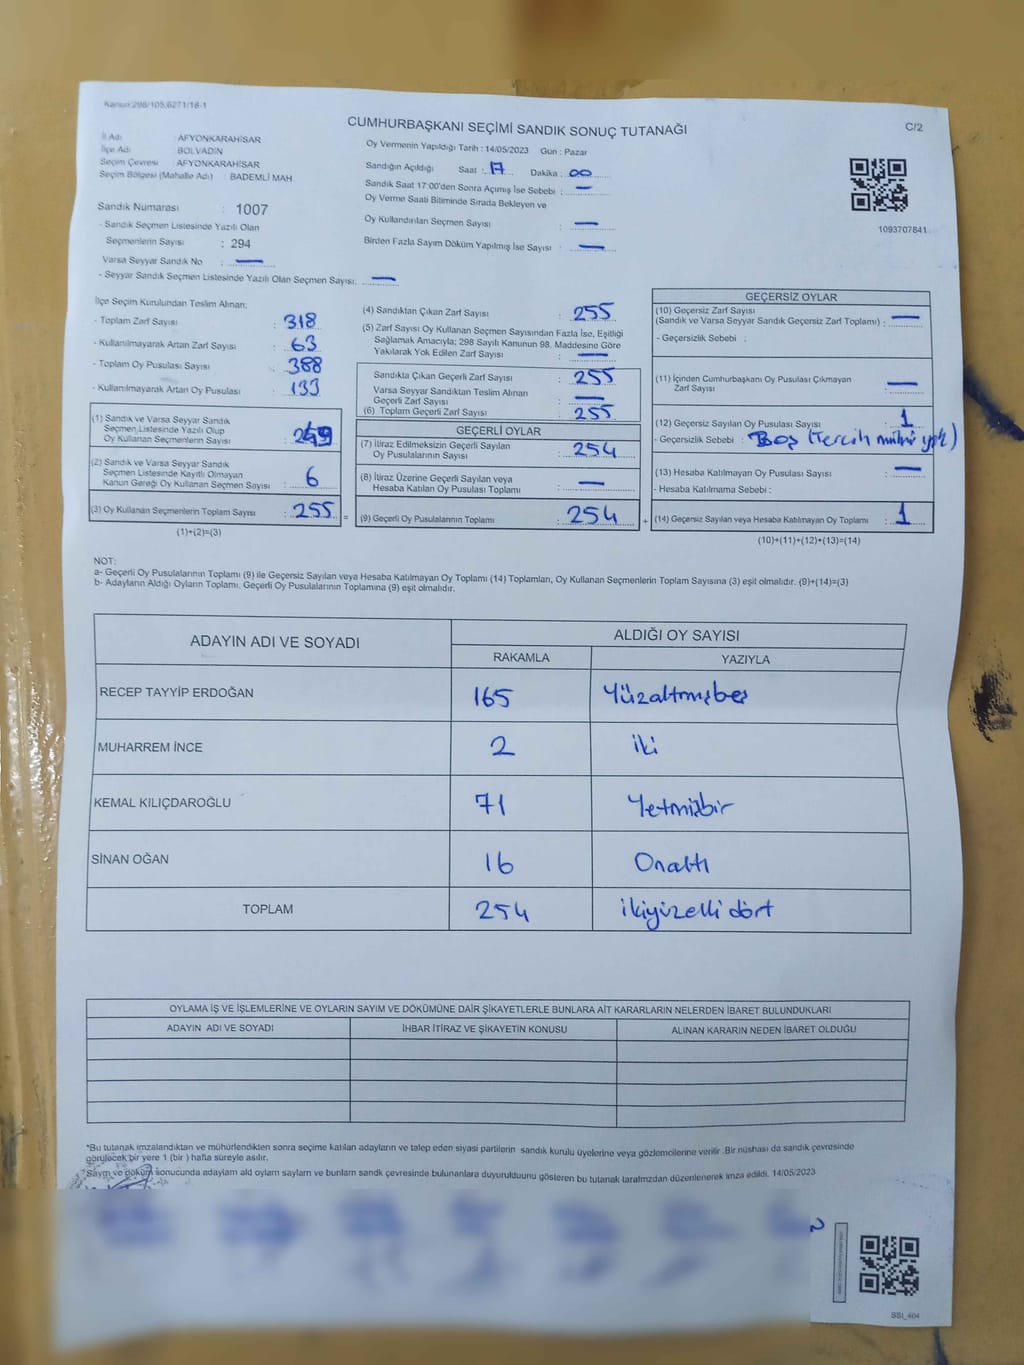 Kanun:298/105,6271/18-1
C/2
CUMHURBAŞKANI SEÇİMİ SANDIK SONUÇ TUTANAĞI
İl Adı : AFYONKARAHİSAR
İlçe Adı : BOLVADİN
Seçim Çevresi : AFYONKARAHİSAR
Seçim Bölgesi (Mahalle Adı) : BADEMLİ MAH
Sandık Numarası : 1007
- Sandık Seçmen Listesinde Yazılı Olan
Seçmenlerin Sayısı : 294
Varsa Seyyar Sandık No : —
- Seyyar Sandık Seçmen Listesinde Yazılı Olan Seçmen Sayısı: —
Oy Vermenin Yapıldığı Tarih : 14/05/2023 Gün : Pazar
Sandığın Açıldığı Saat : 17 Dakika : 00
Sandık Saat 17:00'den Sonra Açımış İse Sebebi : —
Oy Verme Saati Bitiminde Sırada Bekleyen ve
Oy Kullandırılan Seçmen Sayısı : —
Birden Fazla Sayım Döküm Yapılmış İse Sayısı : —
1093707841
İlçe Seçim Kurulundan Teslim Alınan:
- Toplam Zarf Sayısı : 318
- Kullanılmayarak Artan Zarf Sayısı : 63
- Toplam Oy Pusulası Sayısı : 388
- Kullanılmayarak Artan Oy Pusulası : 133
(1) Sandık ve Varsa Seyyar Sandık
Seçmen Listesinde Yazılı Olup
Oy Kullanan Seçmenlerin Sayısı : 249
(2) Sandık ve Varsa Seyyar Sandık
Seçmen Listesinde Kayıtlı Olmayan
Kanun Gereği Oy Kullanan Seçmen Sayısı : 6
(3) Oy Kullanan Seçmenlerin Toplam Sayısı : 255
(1)+(2)=(3)
(4) Sandıktan Çıkan Zarf Sayısı : 255
(5) Zarf Sayısı Oy Kullanan Seçmen Sayısından Fazla İse, Eşitliği
Sağlamak Amacıyla; 298 Sayılı Kanunun 98. Maddesine Göre
Yakılarak Yok Edilen Zarf Sayısı : —
Sandıkta Çıkan Geçerli Zarf Sayısı : 255
Varsa Seyyar Sandıktan Teslim Alınan
Geçerli Zarf Sayısı : —
(6) Toplam Geçerli Zarf Sayısı : 255
GEÇERLİ OYLAR
(7) İtiraz Edilmeksizin Geçerli Sayılan
Oy Pusulalarının Sayısı : 254
(8) İtiraz Üzerine Geçerli Sayılan veya
Hesaba Katılan Oy Pusulası Toplamı : —
= (9) Geçerli Oy Pusulalarının Toplamı : 254
GEÇERSİZ OYLAR
(10) Geçersiz Zarf Sayısı
(Sandık ve Varsa Seyyar Sandık Geçersiz Zarf Toplamı) : —
- Geçersizlik Sebebi :
(11) İçinden Cumhurbaşkanı Oy Pusulası Çıkmayan
Zarf Sayısı : —
(12) Geçersiz Sayılan Oy Pusulası Sayısı : 1
- Geçersizlik Sebebi : Boş (Tercih mührü yok)
(13) Hesaba Katılmayan Oy Pusulası Sayısı : —
- Hesaba Katılmama Sebebi :
+ (14) Geçersiz Sayılan veya Hesaba Katılmayan Oy Toplamı : 1
(10)+(11)+(12)+(13)=(14)
NOT:
a- Geçerli Oy Pusulalarının Toplamı (9) ile Geçersiz Sayılan veya Hesaba Katılmayan Oy Toplamı (14) Toplamları, Oy Kullanan Seçmenlerin Toplam Sayısına (3) eşit olmalıdır. (9)+(14)=(3)
b- Adayların Aldığı Oyların Toplamı, Geçerli Oy Pusulalarının Toplamına (9) eşit olmalıdır.
ADAYIN ADI VE SOYADI ALDIĞI OY SAYISI
RAKAMLA YAZIYLA
RECEP TAYYİP ERDOĞAN 165 Yüzaltmışbeş
MUHARREM İNCE 2 iki
KEMAL KILIÇDAROĞLU 71 Yetmişbir
SİNAN OĞAN 16 Onaltı
TOPLAM 254 ikiyüzelli dört
OYLAMA İŞ VE İŞLEMLERİNE VE OYLARIN SAYIM VE DÖKÜMÜNE DAİR ŞİKAYETLERLE BUNLARA AİT KARARLARIN NELERDEN İBARET BULUNDUKLARI
ADAYIN ADI VE SOYADI İHBAR İTİRAZ VE ŞİKAYETİN KONUSU ALINAN KARARIN NEDEN İBARET OLDUĞU
*Bu tutanak imzalandıktan ve mühürlendikten sonra seçime katılan adayların ve talep eden siyasi partilerin sandık kurulu üyelerine veya gözlemcilerine verilir .Bir nüshası da sandık çevresinde
görülecek bir yere 1 (bir ) hafta süreyle asılır.
Sayım ve döküm sonucunda adayların aldı oyların sayların ve bunların sandık çevresinde bulunanlara duyurulduunu gösteren bu tutanak tarafmzdan düzenlenerek imza edildi. 14/05/2023
BSI_404